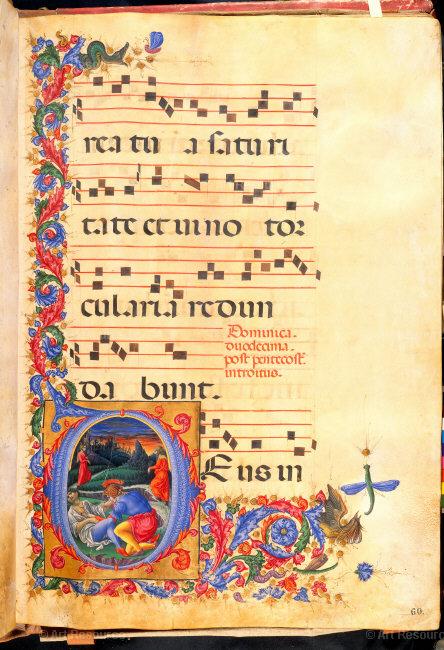 rea tu a saturi
tate et vino tor
cularia redun
Dominica.
duodecima.
post pentecost.
introitus.
da bunt.
Eus in
60.
© Art Resource
© Art Resou